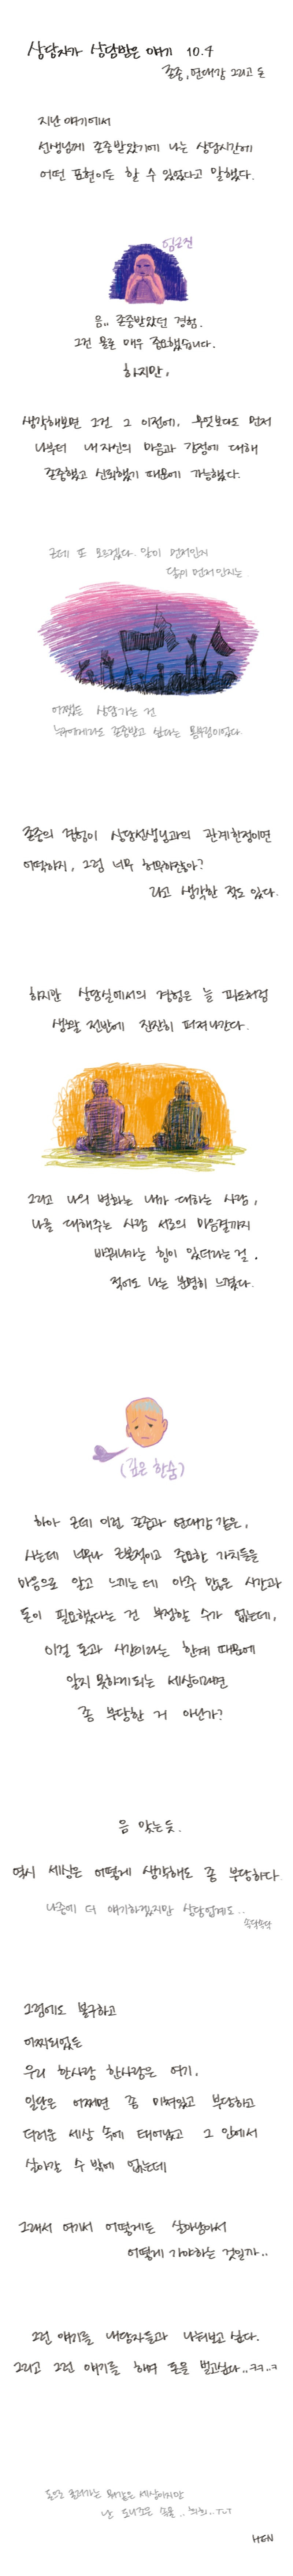 상담자가 상담받은 얘기 10.4
존중, 연대감 그리고 돈
지난 얘기에서
선생님께 존중받았기에 나는 상담시간에
어떤 표현이든 할 수 있었다고 말했다.
음.. 존중받았던 경험.
그건 물론 매우 중요했습니다.
하지만,
생각해보면 그건 그 이전에, 무엇보다도 먼저
나부터 내 자신의 마음과 감정에 대해
존중했고 신뢰했기 때문에 가능했다.
근데 또 모르겠다. 알이 먼저인지
닭이 먼저인지는
어쨌든 상담가는 건
누구에게라도 존중받고 싶다는 몸부림이었다.
존중의 경험이 상담선생님과의 관계한정이면
어떡하지, 그럼 너무 허무하잖아?
라고 생각한 적도 있다.
하지만 상담실에서의 경험은 늘 파도처럼
생활 전반에 잔잔히 퍼져나간다.
그리고 나의 변화는 내가 대하는 사람,
나를 대해주는 사람 서로의 마음결까지
바꿔나가는 힘이 있더라는 걸.
적어도 나는 분명히 느꼈다.
(깊은 한숨)
하아 근데 이런 존중과 연대감 같은,
사는데 너무나 근본적이고 중요한 가치들을
마음으로 알고 느끼는데 아주 많은 시간과
돈이 필요했다는 건 부정할 수가 없는데,
이걸 돈과 시간이라는 한계 때문에
알지 못하게 되는 세상이라면
좀 부당한 거 아닌가?
음 맞는듯.
역시 세상은 어떻게 생각해도 좀 부당하다.
나중에 더 얘기하겠지만 상담업계도..
속닥속닥
그럼에도 불구하고
어찌되었든
우리 한사람 한사람은 여기,
일단은 어쩌면 좀 미쳐있고 부당하고
더러운 세상 속에 태어났고 그 안에서
살아갈 수 밖에 없는데
그래서 여기서 어떻게든 살아남아서
어떻게 가야하는 것일까..
그런 얘기를 내담자들과 나눠보고 싶다.
그리고 그런 얘기를 하며 돈을 벌고싶다..ㅋㅋ..ㅋ
돈으로 굴러가는 세상이지만
난 속물.. TㅜT
HEN